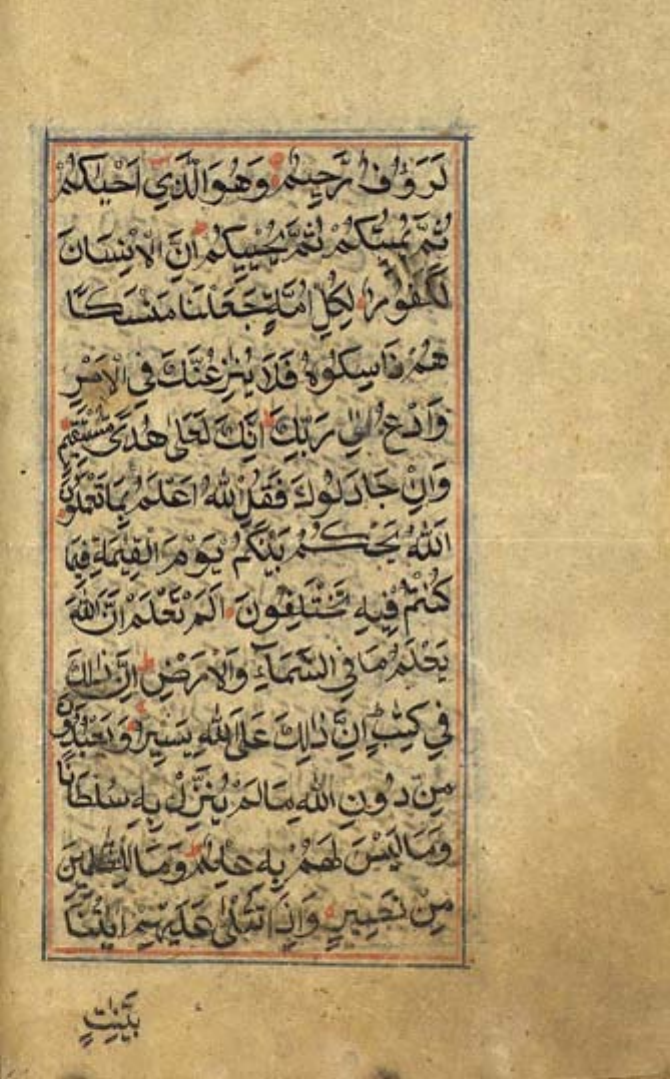 لَرَؤُفٌ رَّحِيمٌ وَهُوَ الَّذِي اَحْيَاكُمْ
ثُمَّ يُمِيتُكُمْ ثُمَّ يُحْيِيكُمْ اِنَّ الْاِنْسَانَ
لَكَفُورٌ لِكُلِّ اُمَّةٍ جَعَلْنَا مَنْسَكًا
هُمْ نَاسِكُوهُ فَلَا يُنٰزِعُنَّكَ فِي الْاَمْرِ
وَادْعُ اِلٰى رَبِّكَ اِنَّكَ لَعَلٰى هُدًى مُسْتَقِيمٍ
وَاِنْ جَادَلُوكَ فَقُلِ اللهُ اَعْلَمُ بِمَا تَعْمَلُونَ
اَللهُ يَحْكُمُ بَيْنَكُمْ يَوْمَ الْقِيٰمَةِ فِيمَا
كُنْتُمْ فِيهِ تَخْتَلِفُونَ اَلَمْ تَعْلَمْ اَنَّ اللهَ
يَعْلَمُ مَا فِي السَّمَاءِ وَالْاَرْضِ اِنَّ ذٰلِكَ
فِي كِتٰبٍ اِنَّ ذٰلِكَ عَلَى اللهِ يَسِيرٌ وَيَعْبُدُونَ
مِنْ دُونِ اللهِ مَا لَمْ يُنَزِّلْ بِهِ سُلْطَانًا
وَمَا لَيْسَ لَهُمْ بِهِ عِلْمٌ وَمَا لِلظّٰلِمِينَ
مِنْ نَصِيرٍ وَاِذَا تُتْلٰى عَلَيْهِمْ اٰيٰتُنَا
بَيِّنٰتٍ